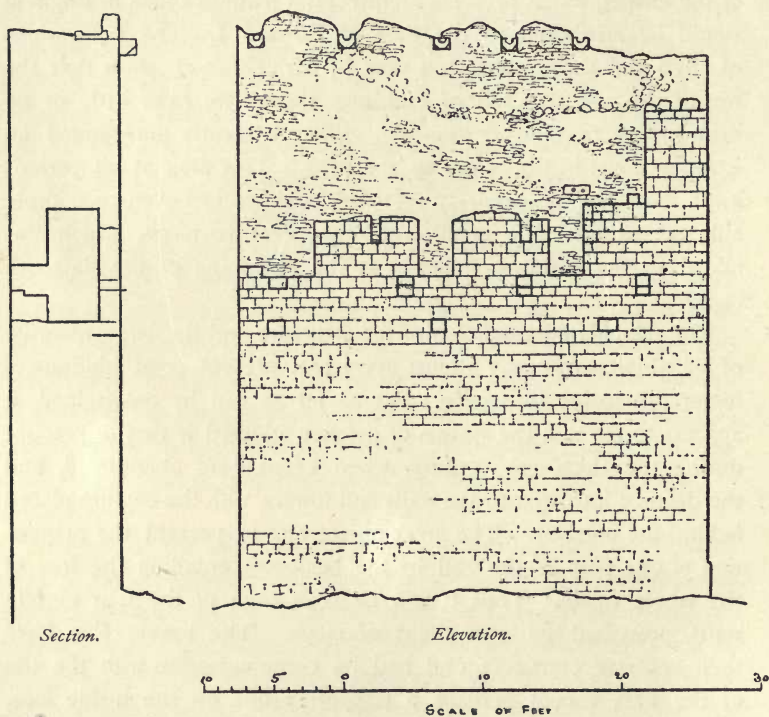 Section.
Elevation.
10 5 0 10 20 30
SCALE OF FEET